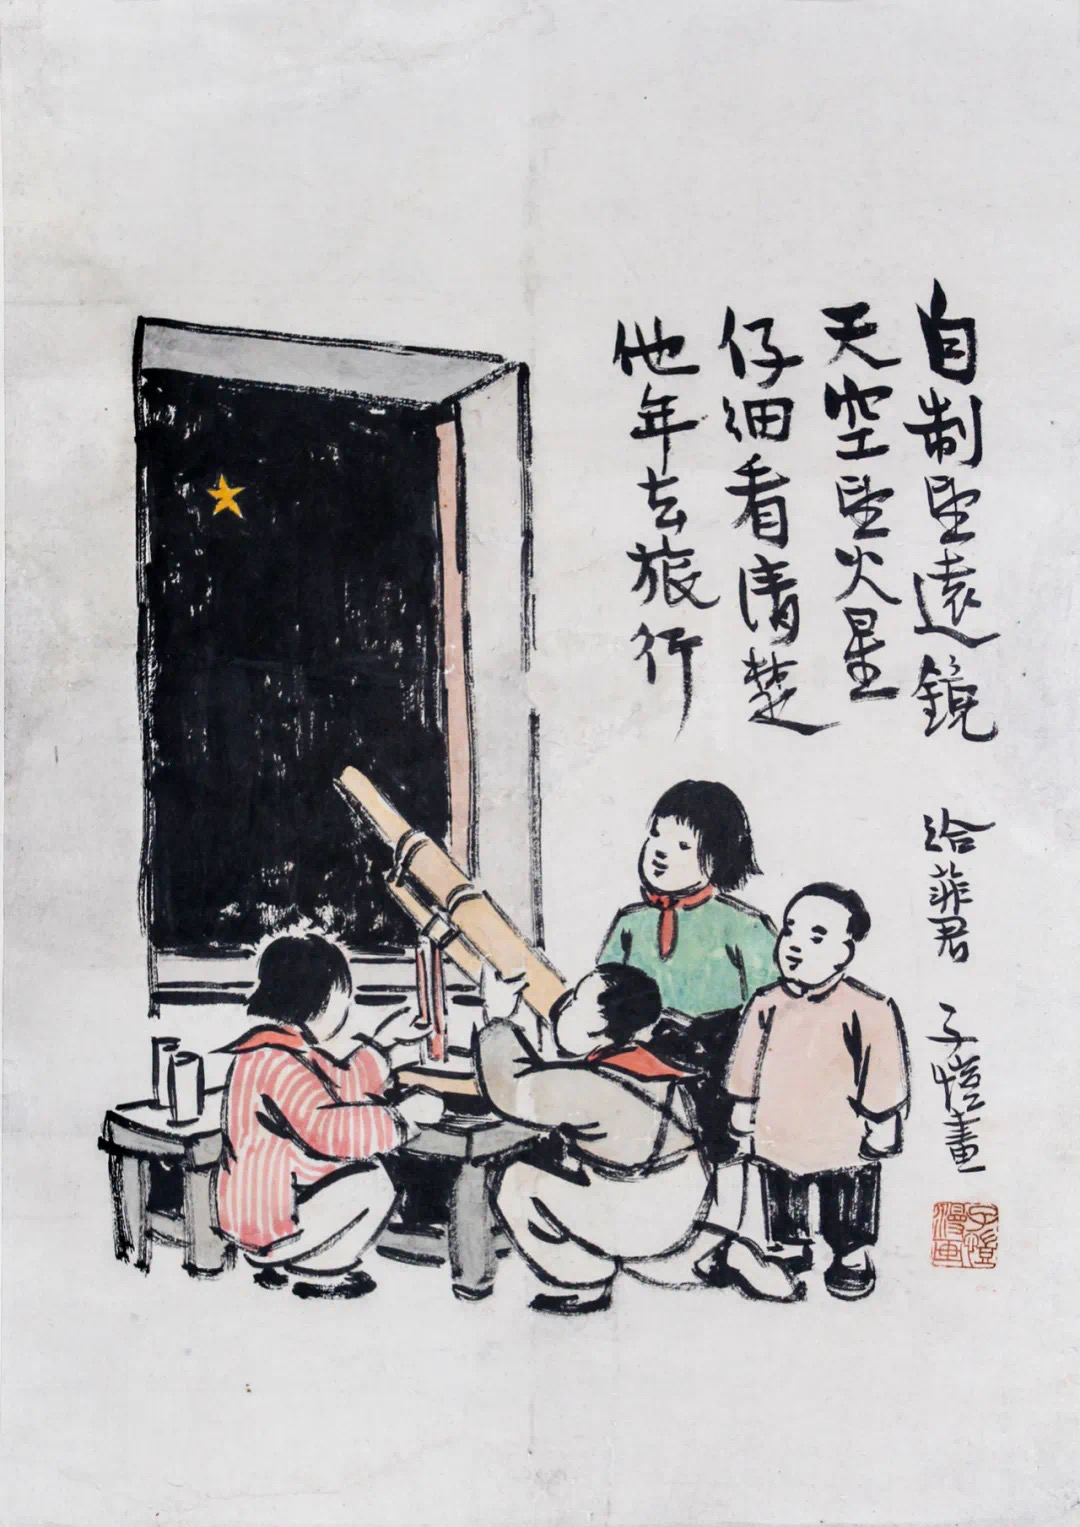 自制望遠鏡
天空望火星
仔细看清楚
他年去旅行
给菲君 子愷畫
子愷漫画